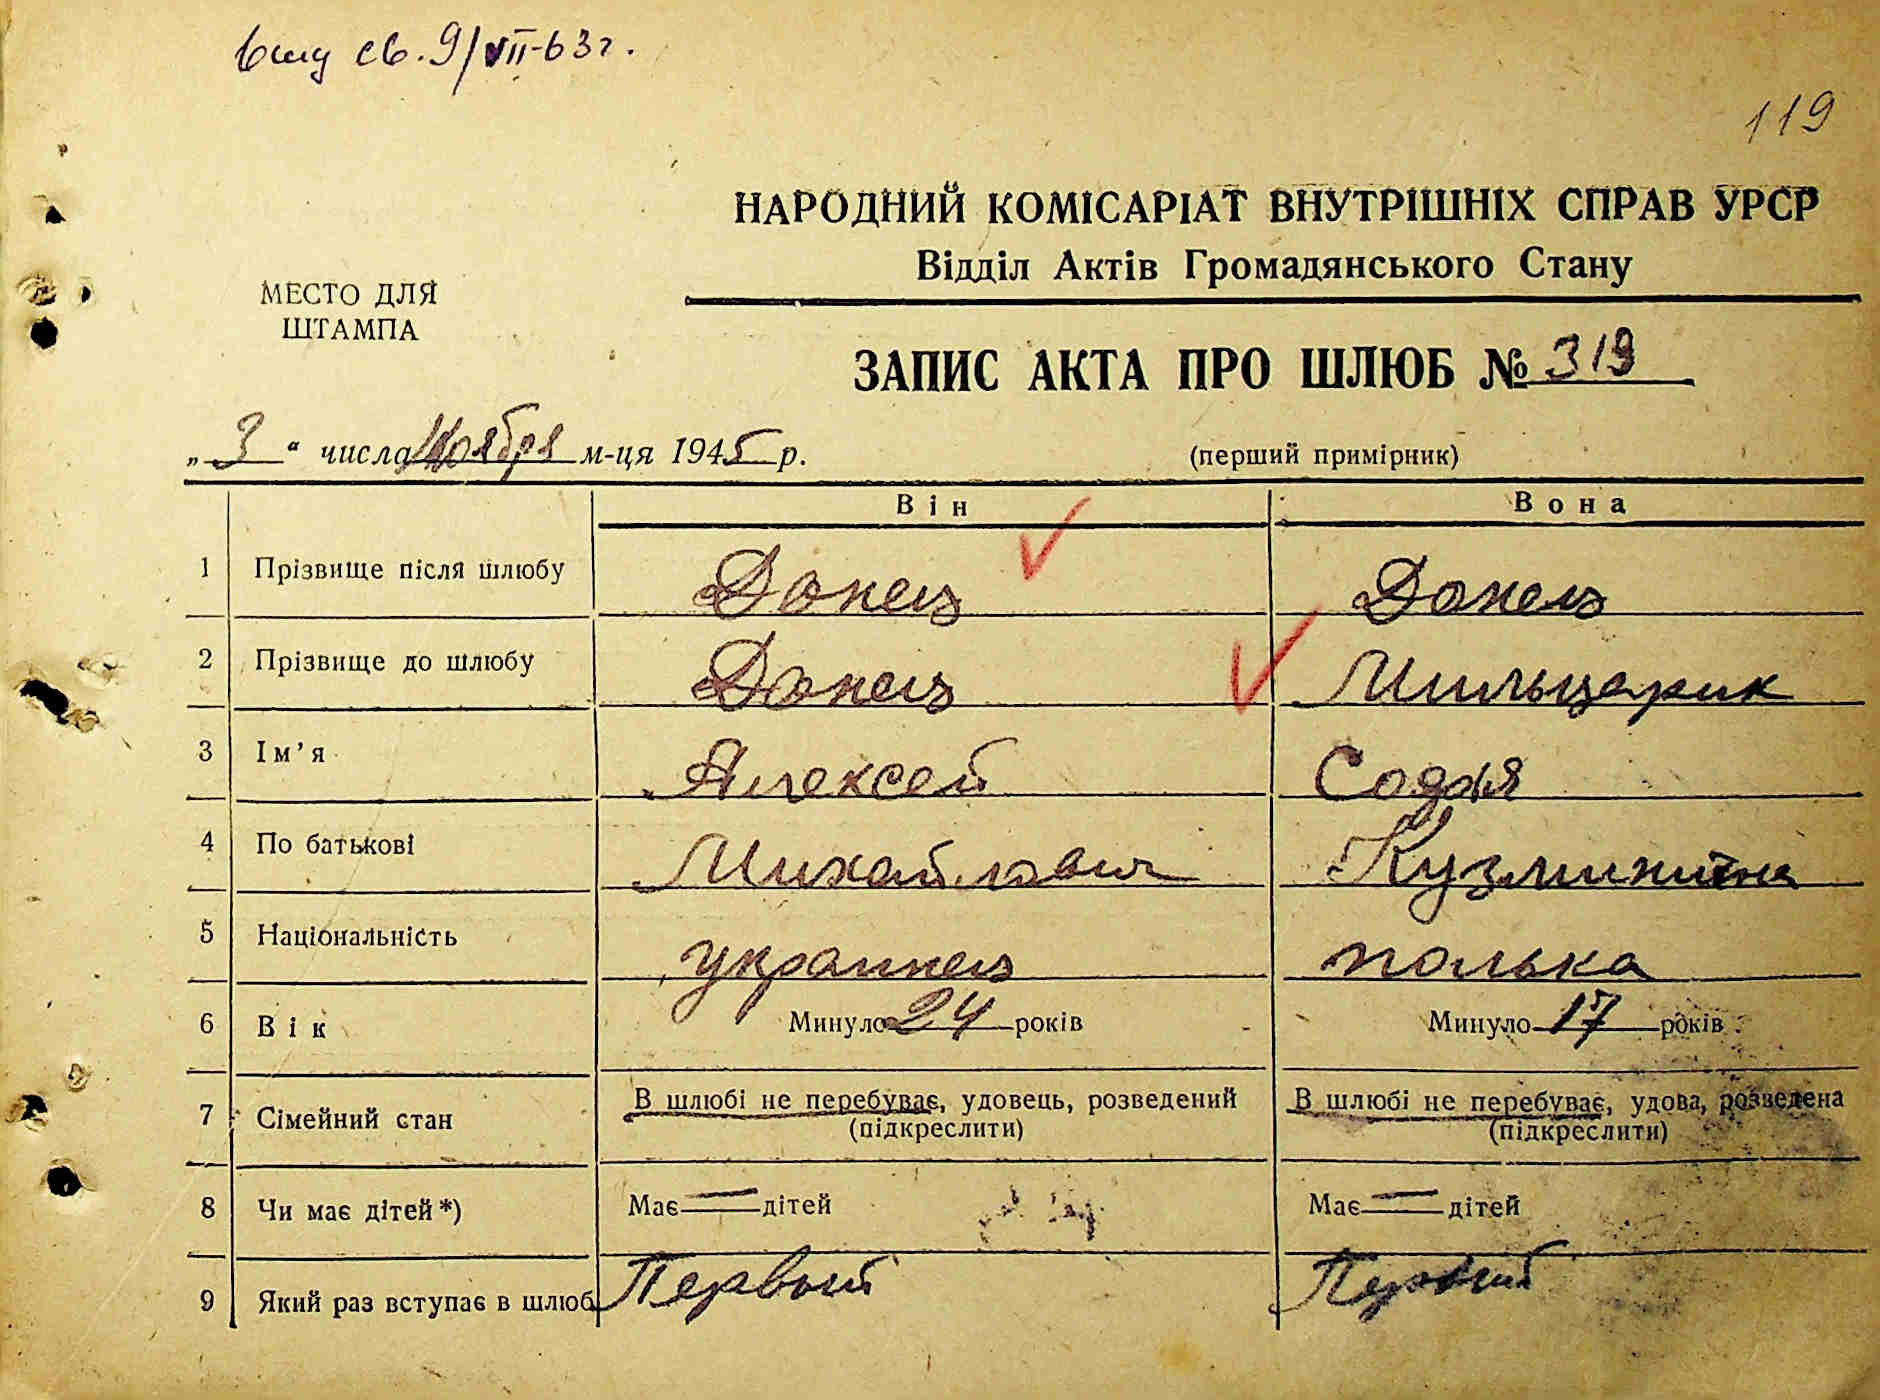 св. 9/VII-63г.
119
НАРОДНИЙ КОМІСАРІАТ ВНУТРІШНІХ СПРАВ УРСР
Відділ Актів Громадянського Стану
МЕСТО ДЛЯ
ШТАМПА
ЗАПИС АКТА ПРО ШЛЮБ № 319
„ 3 “ числа Ноября м-ця 1945 р.
(перший примірник)
Він Вона
1 Прізвище після шлюбу Донец Донец
2 Прізвище до шлюбу Донец Мильцарик
3 Ім’я Алексей Софья
4 По батькові Михайлович Кузминична
5 Національність украинец полька
6 Вік Минуло 24 років Минуло 17 років
7 Сімейний стан В шлюбі не перебуває, удовець, розведений В шлюбі не перебуває, удова, розведена
(підкреслити) (підкреслити)
8 Чи має дітей*) Має — дітей Має — дітей
9 Який раз вступає в шлюб Первый Первый